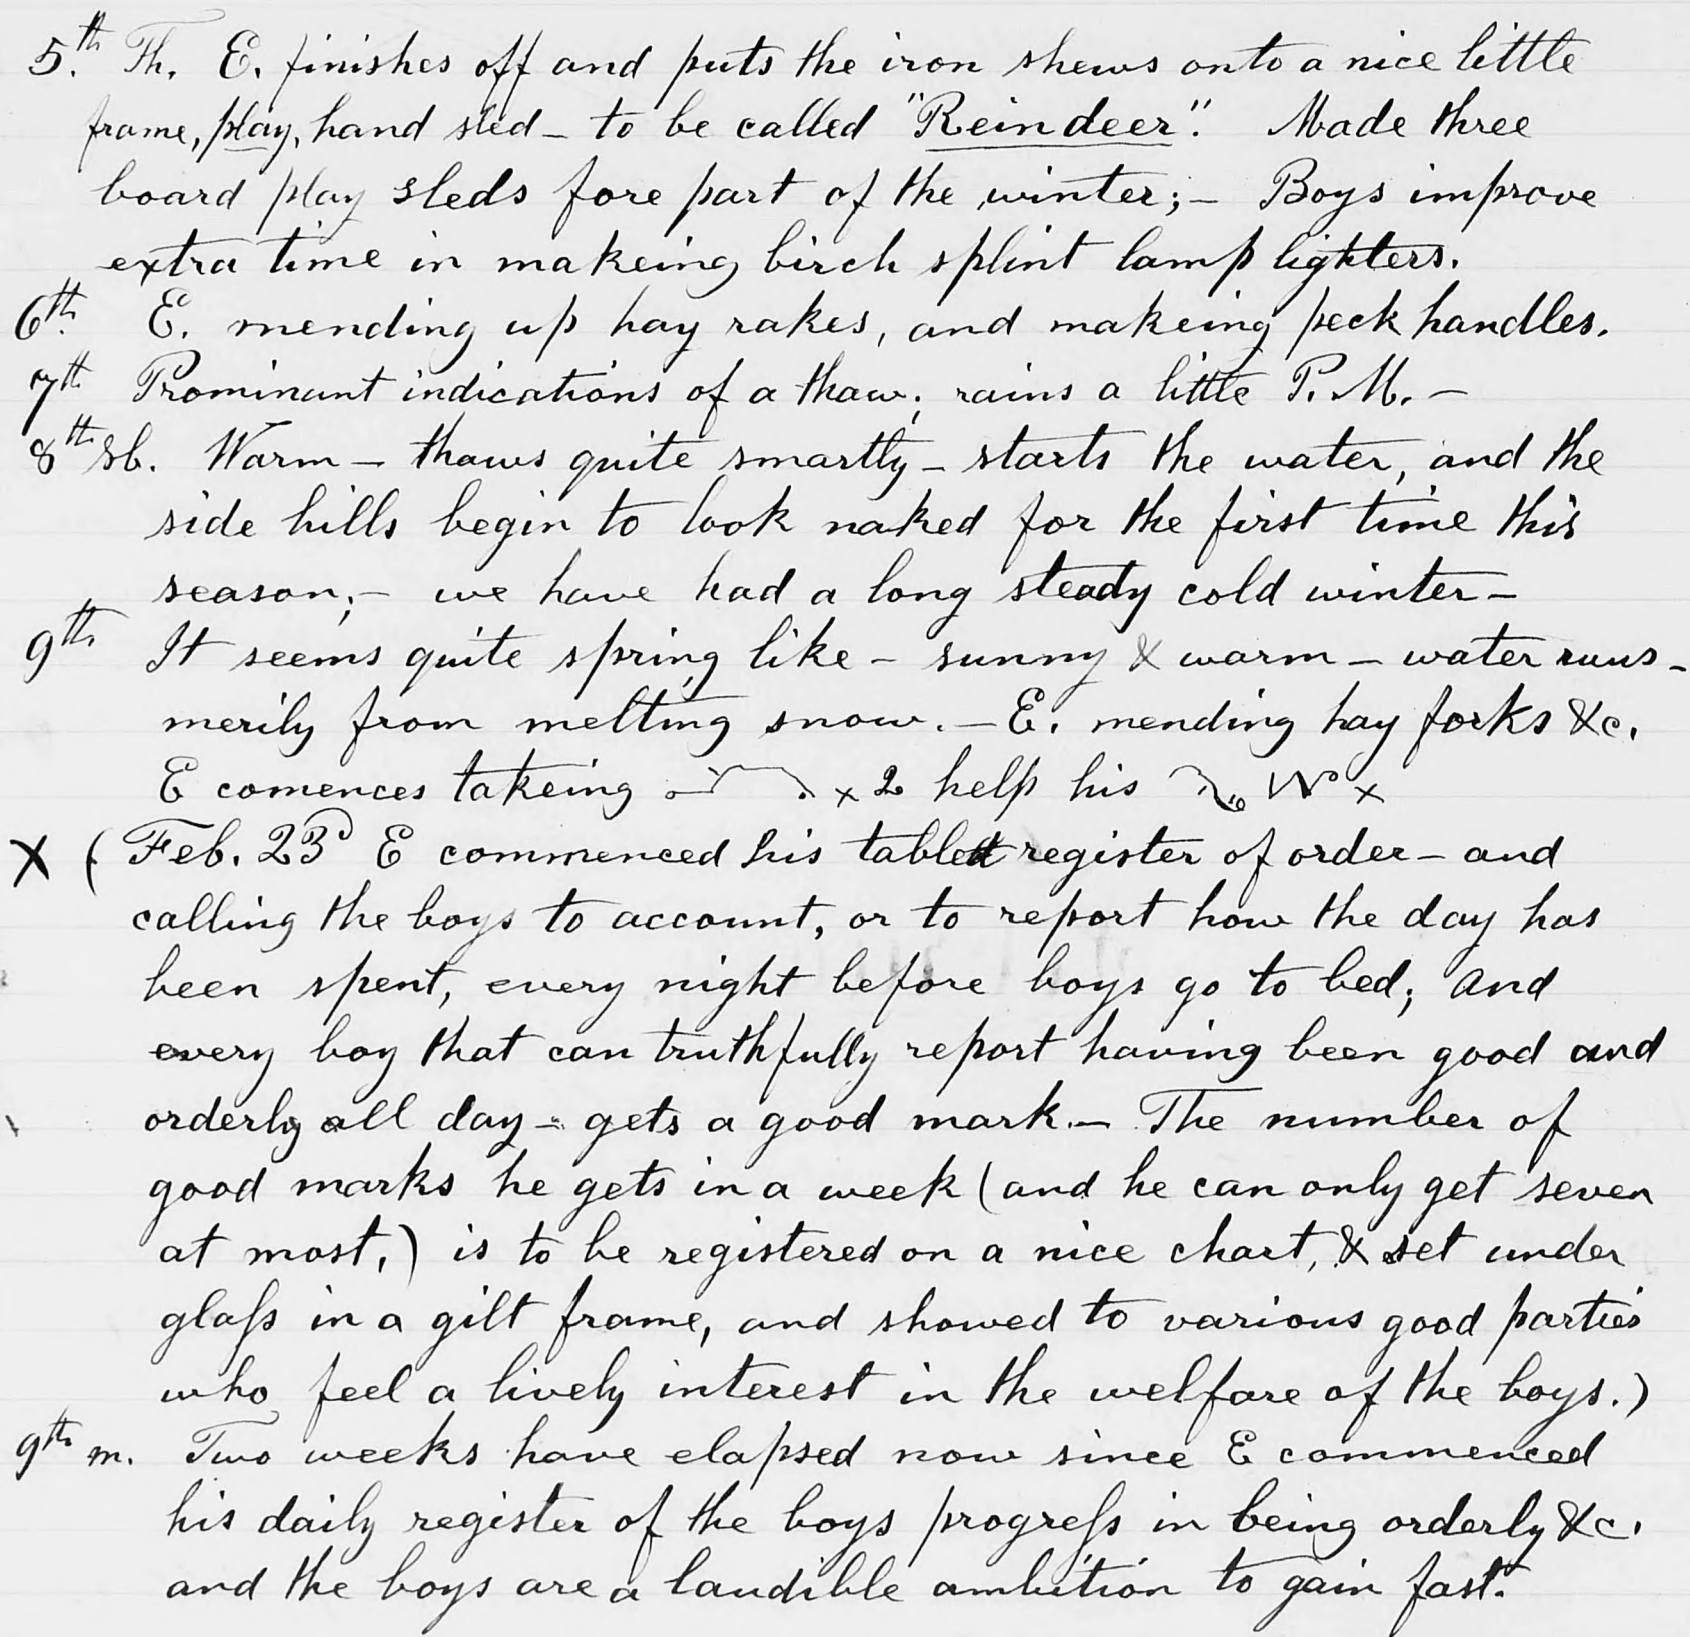 5.th Th. E. finishes off and puts the iron shews onto a nice little
frame, play, hand sled – to be called "Reindeer". Made three
board play sleds fore part of the winter; – Boys improve
extra time in makeing birch splint lamp lighters.
6th. E. mending up hay rakes, and makeing peck handles.
7th Prominant indications of a thaw; rains a little P. M. –
8th Sb. Warm – thaws quite smartly – starts the water, and the
side hills begin to look naked for the first time this
season; – we have had a long steady cold winter –
9th It seems quite spring like – sunny & warm – water runs –
merily from melting snow. – E. mending hay forks &c.
E comences takeing x 2 help his x
X ( Feb. 23d E commenced his tablett register of order – and
calling the boys to account, or to report how the day has
been spent, every night before boys go to bed; And
every boy that can truthfully report having been good and
orderly all day – gets a good mark. – The number of
good marks he gets in a week (and he can only get seven
at most,) is to be registered on a nice chart, & set under
glaſs in a gilt frame, and showed to various good parties
who feel a lively interest in the welfare of the boys.)
9th m. Two weeks have elapsed now since E commenced
his daily register of the boys progreſs in being orderly &c.
and the boys are a laudible ambition to gain fast.